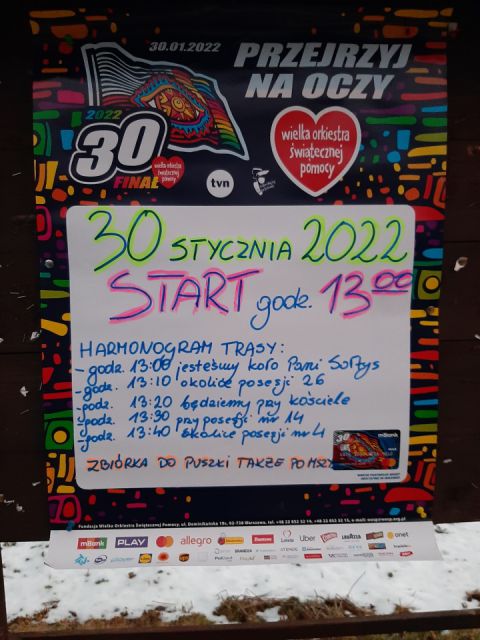 30.01.2022
PRZEJRZYJ
NA OCZY
2022
30
FINAŁ
wielka orkiestra
świątecznej
pomocy
wielka orkiestra
świątecznej
pomocy
tvn
30 STYCZNIA 2022
START godz. 13 00
HARMONOGRAM TRASY:
- godz. 13:00 jesteśmy koło Pani Sołtys
- godz. 13:10 okolice posesji 26
- godz. 13:20 będziemy przy kościele
godz. 13:30 przy posesji nr 14
godz. 13:40 okolice posesji nr 4
30
mBank
ZBIÓRKA DO PUSZKI TAKŻE PO MSZY
Fundacja Wielka Orkiestra Świątecznej Pomocy, ul. Dominikańska 19c, 02-738 Warszawa
mBank PLAY allegro Uber LAVAZZA onet